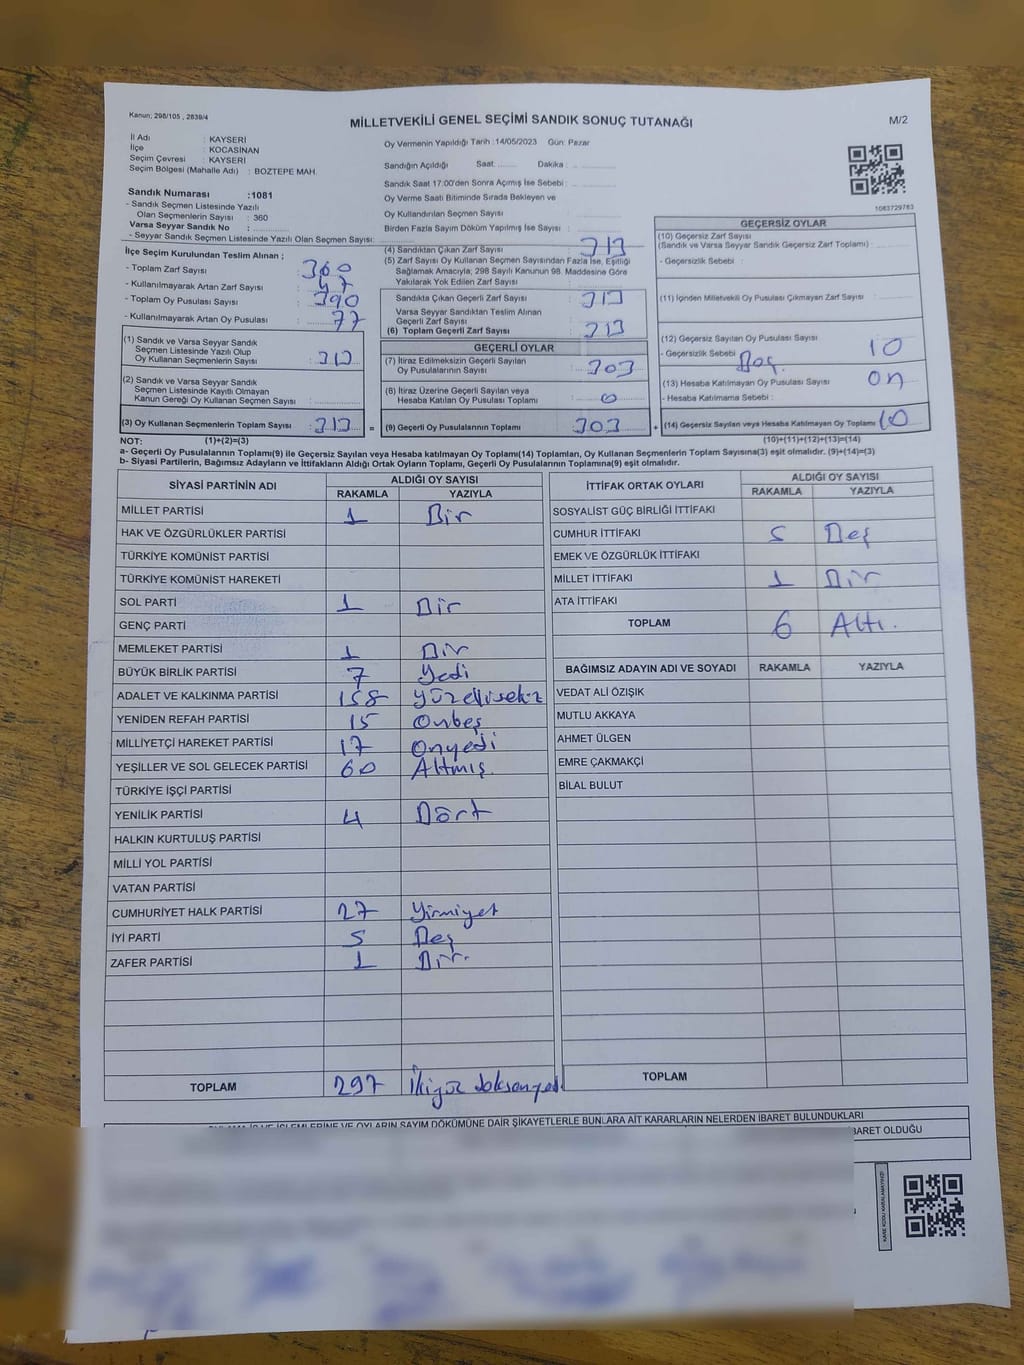 Kanun; 298/105 , 2839/4
MİLLETVEKİLİ GENEL SEÇİMİ SANDIK SONUÇ TUTANAĞI
M/2
İl Adı : KAYSERİ
İlçe : KOCASİNAN
Seçim Çevresi : KAYSERİ
Seçim Bölgesi (Mahalle Adı) : BOZTEPE MAH.
Sandık Numarası :1081
- Sandık Seçmen Listesinde Yazılı
Olan Seçmenlerin Sayısı : 360
Varsa Seyyar Sandık No :
- Seyyar Sandık Seçmen Listesinde Yazılı Olan Seçmen Sayısı:
İlçe Seçim Kurulundan Teslim Alınan ;
- Toplam Zarf Sayısı : 360
- Kullanılmayarak Artan Zarf Sayısı : 47
- Toplam Oy Pusulası Sayısı : 390
- Kullanılmayarak Artan Oy Pusulası : 77
(1) Sandık ve Varsa Seyyar Sandık
Seçmen Listesinde Yazılı Olup
Oy Kullanan Seçmenlerin Sayısı : 313
(2) Sandık ve Varsa Seyyar Sandık
Seçmen Listesinde Kayıtlı Olmayan
Kanun Gereği Oy Kullanan Seçmen Sayısı :
(3) Oy Kullanan Seçmenlerin Toplam Sayısı : 313 =
Oy Vermenin Yapıldığı Tarih :14/05/2023 Gün: Pazar
Sandığın Açıldığı Saat: Dakika :
Sandık Saat 17:00'den Sonra Açılmış İse Sebebi :
Oy Verme Saati Bitiminde Sırada Bekleyen ve
Oy Kullandırılan Seçmen Sayısı :
Birden Fazla Sayım Döküm Yapılmış İse Sayısı :
(4) Sandıktan Çıkan Zarf Sayısı : 313
(5) Zarf Sayısı Oy Kullanan Seçmen Sayısından Fazla İse, Eşitliği
Sağlamak Amacıyla; 298 Sayılı Kanunun 98. Maddesine Göre
Yakılarak Yok Edilen Zarf Sayısı :
Sandıkta Çıkan Geçerli Zarf Sayısı : 313
Varsa Seyyar Sandıktan Teslim Alınan
Geçerli Zarf Sayısı :
(6) Toplam Geçerli Zarf Sayısı : 313
GEÇERLİ OYLAR
(7) İtiraz Edilmeksizin Geçerli Sayılan
Oy Pusulalarının Sayısı : 303
(8) İtiraz Üzerine Geçerli Sayılan veya
Hesaba Katılan Oy Pusulası Toplamı : 0
(9) Geçerli Oy Pusulalarının Toplamı : 303 +
1083729763
GEÇERSİZ OYLAR
(10) Geçersiz Zarf Sayısı
(Sandık ve Varsa Seyyar Sandık Geçersiz Zarf Toplamı) :
- Geçersizlik Sebebi :
(11) İçinden Milletvekili Oy Pusulası Çıkmayan Zarf Sayısı :
(12) Geçersiz Sayılan Oy Pusulası Sayısı : 10
- Geçersizlik Sebebi : Boş.
(13) Hesaba Katılmayan Oy Pusulası Sayısı : on
- Hesaba Katılmama Sebebi :
(14) Geçersiz Sayılan veya Hesaba Katılmayan Oy Toplamı : 10
NOT: (1)+(2)=(3) (10)+(11)+(12)+(13)=(14)
a- Geçerli Oy Pusulalarının Toplamı(9) ile Geçersiz Sayılan veya Hesaba katılmayan Oy Toplamı(14) Toplamları, Oy Kullanan Seçmenlerin Toplam Sayısına(3) eşit olmalıdır. (9)+(14)=(3)
b- Siyasi Partilerin, Bağımsız Adayların ve İttifakların Aldığı Ortak Oyların Toplamı, Geçerli Oy Pusulalarının Toplamına(9) eşit olmalıdır.
SİYASİ PARTİNİN ADI ALDIĞI OY SAYISI
RAKAMLA YAZIYLA
MİLLET PARTİSİ 1 Bir
HAK VE ÖZGÜRLÜKLER PARTİSİ
TÜRKİYE KOMÜNİST PARTİSİ
TÜRKİYE KOMÜNİST HAREKETİ
SOL PARTİ 1 Bir
GENÇ PARTİ
MEMLEKET PARTİSİ 1 Bir
BÜYÜK BİRLİK PARTİSİ 7 Yedi
ADALET VE KALKINMA PARTİSİ 158 Yüzellisekiz
YENİDEN REFAH PARTİSİ 15 Onbeş
MİLLİYETÇİ HAREKET PARTİSİ 17 Onyedi
YEŞİLLER VE SOL GELECEK PARTİSİ 60 Altmış.
TÜRKİYE İŞÇİ PARTİSİ
YENİLİK PARTİSİ 4 Dört
HALKIN KURTULUŞ PARTİSİ
MİLLİ YOL PARTİSİ
VATAN PARTİSİ
CUMHURİYET HALK PARTİSİ 27 Yirmiyet
İYİ PARTİ 5 Beş
ZAFER PARTİSİ 1 Bir.
TOPLAM 297 İkiyüz doksanyedi
İTTİFAK ORTAK OYLARI ALDIĞI OY SAYISI
RAKAMLA YAZIYLA
SOSYALİST GÜÇ BİRLİĞİ İTTİFAKI
CUMHUR İTTİFAKI 5 Beş
EMEK VE ÖZGÜRLÜK İTTİFAKI
MİLLET İTTİFAKI 1 Bir
ATA İTTİFAKI
TOPLAM 6 Altı.
BAĞIMSIZ ADAYIN ADI VE SOYADI RAKAMLA YAZIYLA
VEDAT ALİ ÖZIŞIK
MUTLU AKKAYA
AHMET ÜLGEN
EMRE ÇAKMAKÇİ
BİLAL BULUT
TOPLAM
İŞLEMLERİNE VE OYLARIN SAYIM DÖKÜMÜNE DAİR ŞİKAYETLERLE BUNLARA AİT KARARLARIN NELERDEN İBARET BULUNDUKLARI
İBARET OLDUĞU